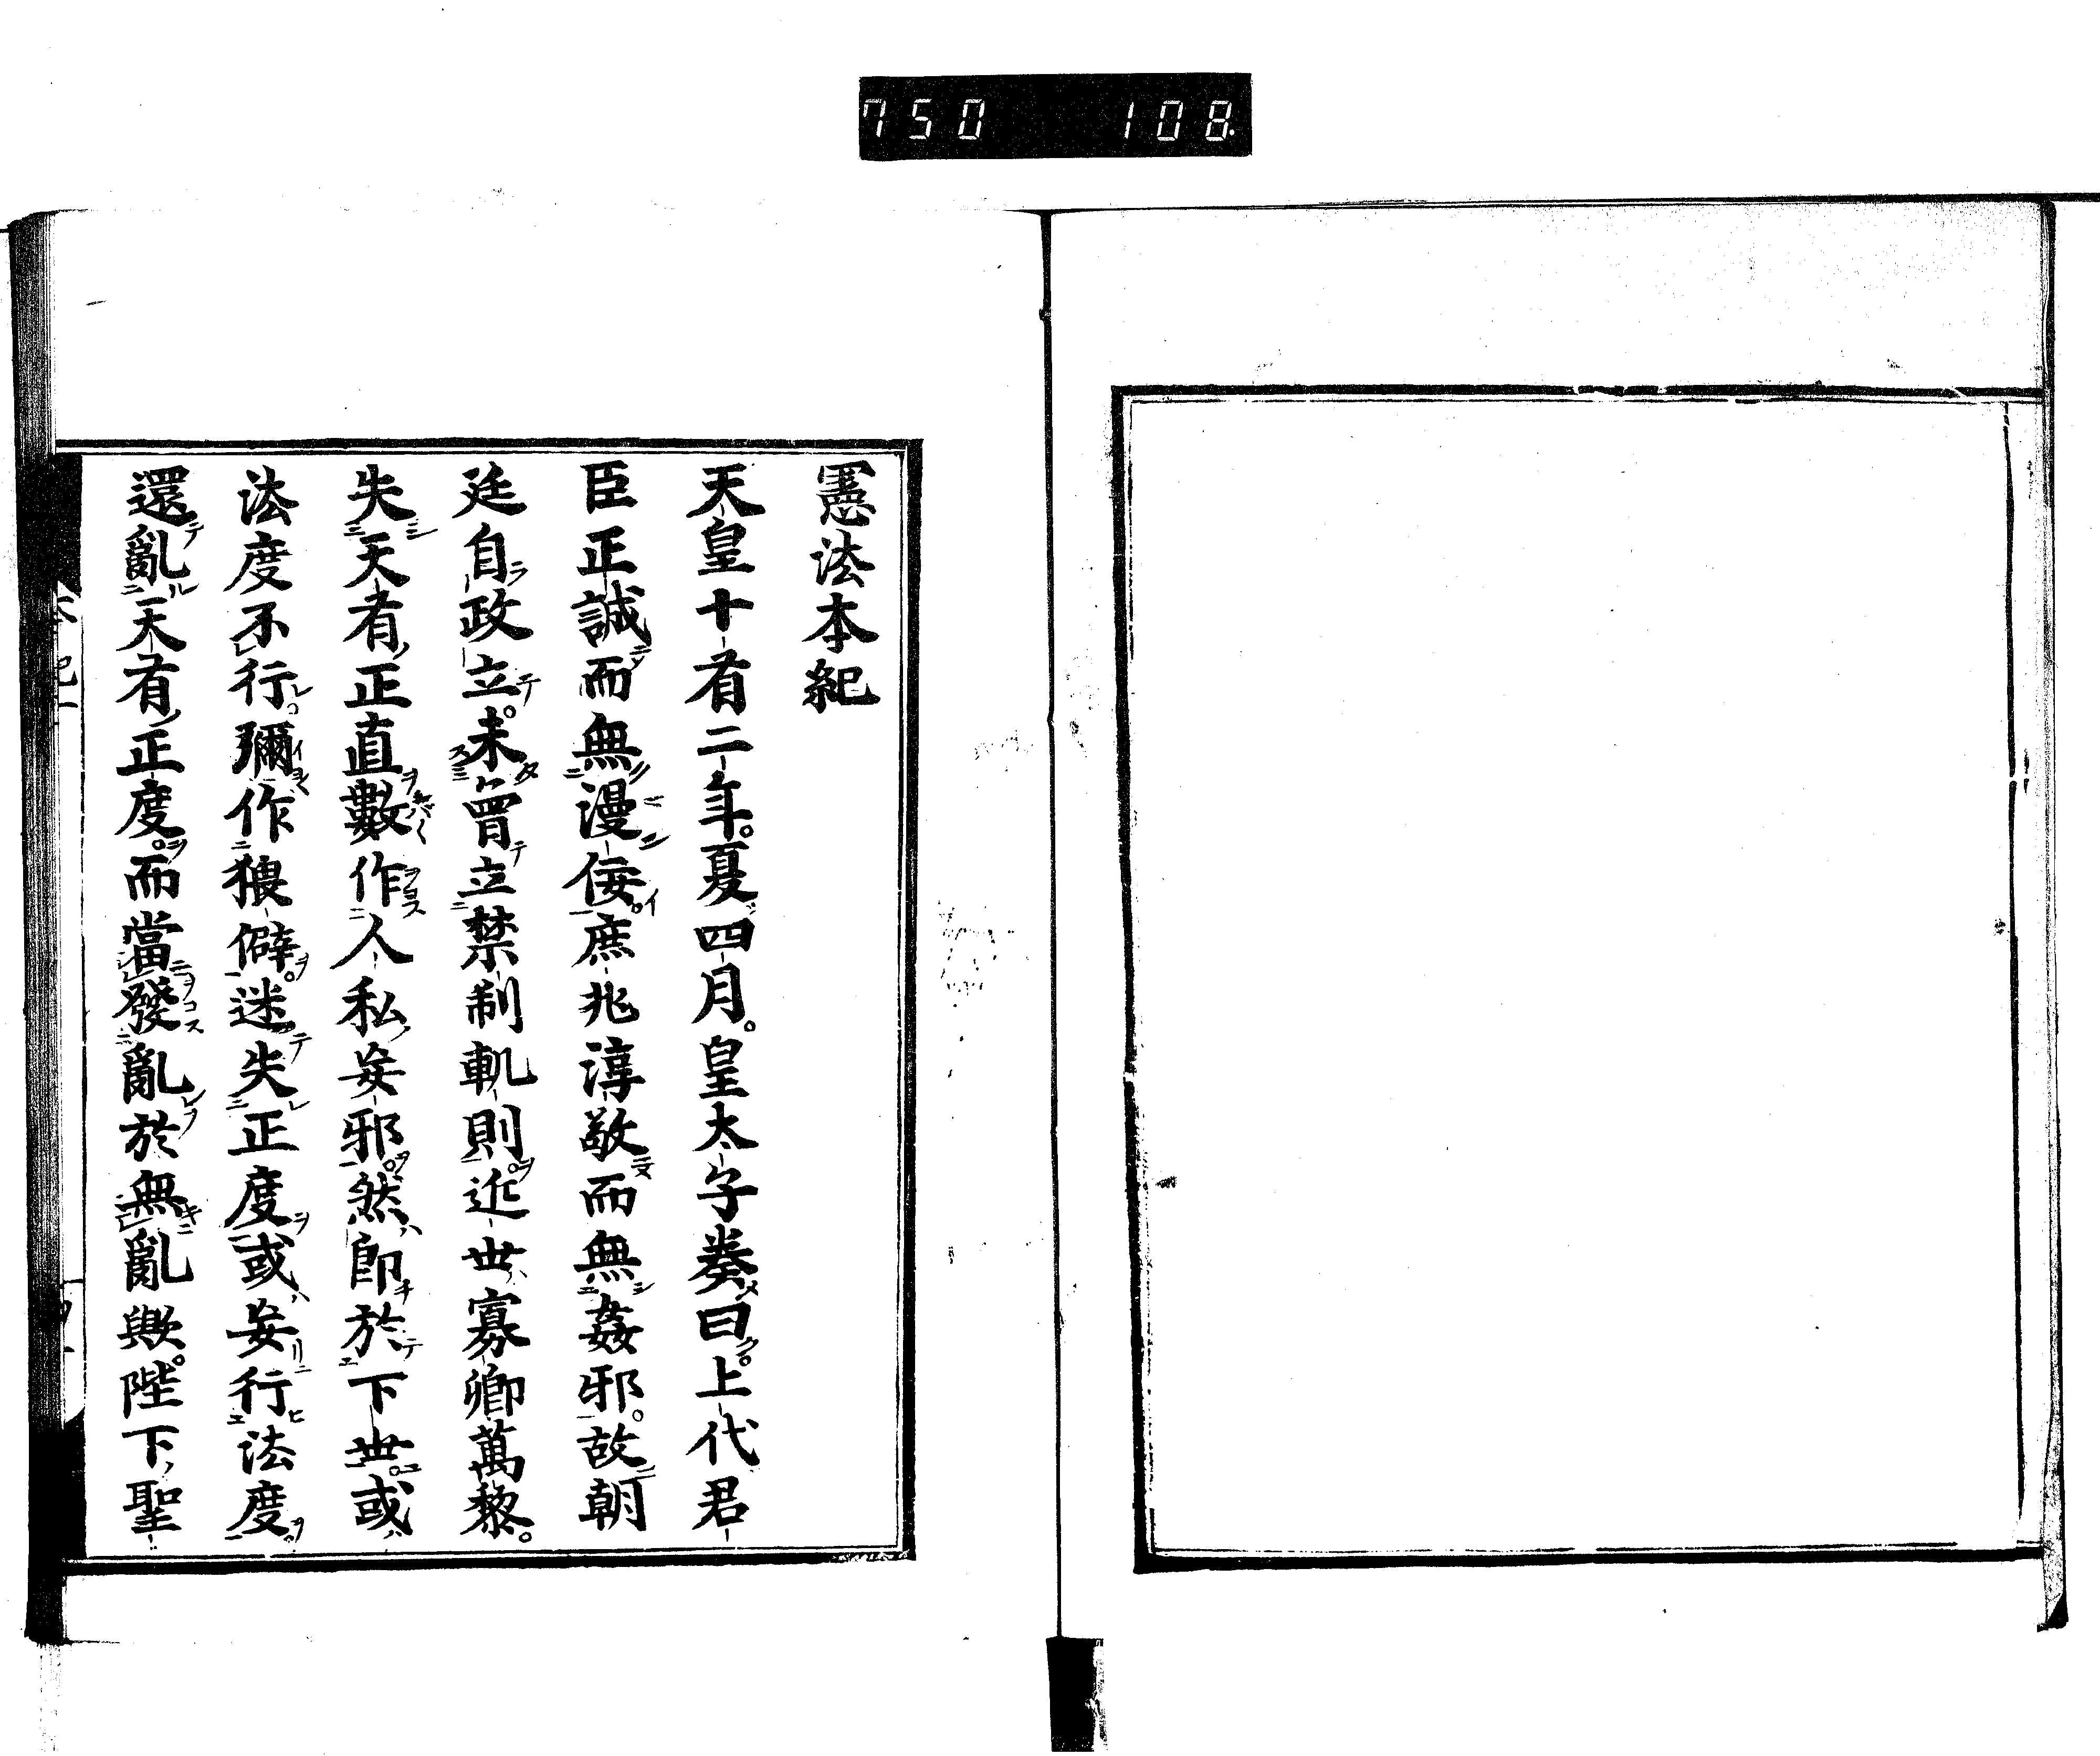 750 108
憲法本紀
天皇十有二年。夏四月。皇太子奏曰。上代君
臣正誠而無漫佞。庶兆淳敬而無姦邪。故朝
廷自政立。未嘗立禁制軌則。近世寡卿萬黎。
失天有正直數作人私妄邪。然即於下世。或
法度不行。彌作猥僻。迷失正度或妄行法度。
還亂天有正度。而當發亂於無亂歟。陛下聖